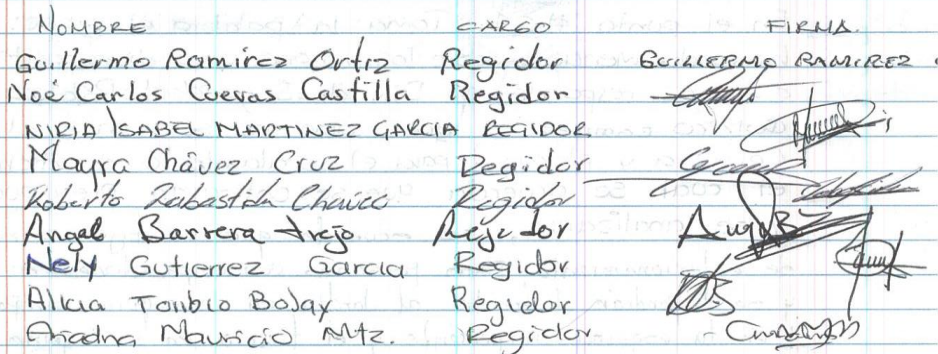 NOMBRE CARGO FIRMA.
Guillermo Ramirez Ortiz Regidor GUILLERMO RAMIREZ
Noé Carlos Cuevas Castilla Regidor
NIRIA ISABEL MARTINEZ GARCIA REGIDOR
Mayra Chávez Cruz Regidor
Roberto Zabastida Regidor
Angel Barrera trejo Rejidor
Nely Gutierrez Garcia Regidor
Alicia Toribio Bolay Regidor
Ariadna Mauricio Mtz. Regidor